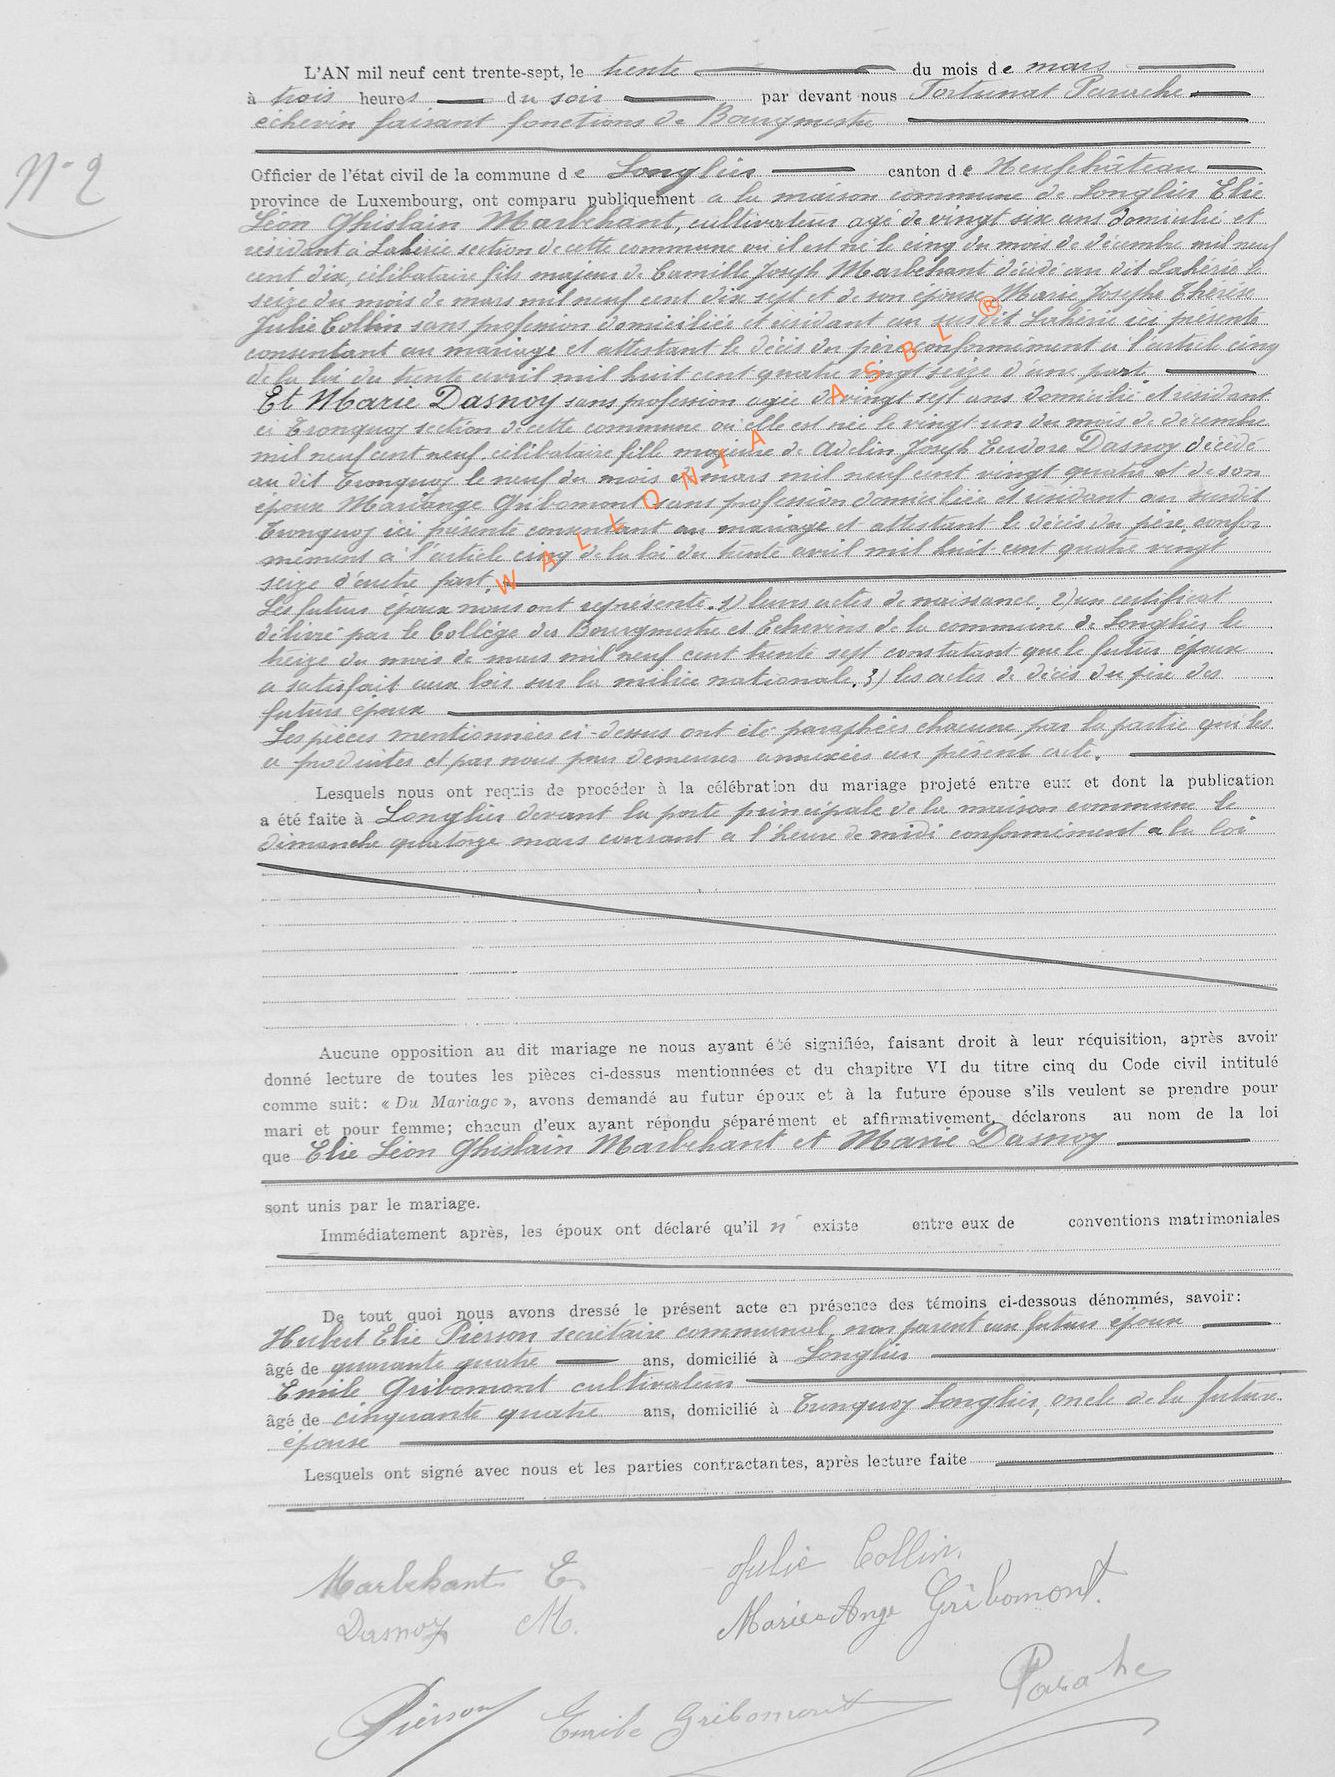 L'AN mil neuf cent trente-sept, le trente du mois de mars
à trois heures du soir par devant nous Fortunat Parache
echevin faisant fonctions de Bourgmestre
N° 2
Officier de l'état civil de la commune de Longlier canton de Neufchâteau
province de Luxembourg, ont comparu publiquement a la maison commune de Longlier Elie
Léon Ghislain Marbehant, cultivateur agé de vingt six ans domicilié et
résidant à Lahérie section de cette commune où il est né le cinq du mois de décembre mil neuf
cent dix, célibataire fils majeur de Camille Joseph Marbehant décédé au dit Lahérie le
seize du mois de mars mil neuf cent dix sept et de son épouse Marie Josephe Thérèse
Julie Collin sans profession domiciliée et résidant au susdit Lahérie ici présente
consentant au mariage et attestant le décès du père conformément à l'article cinq
de la loi du trente avril mil huit cent quatre vingt seize d'une part
Et Marie Dasnoy sans profession agée de vingt sept ans domicilié et résidant
à Tronquoy section de cette commune où elle est née le vingt un du mois de décembre
mil neuf cent neuf, célibataire fille majeure de Adelin Joseph Eudore Dasnoy décédé
au dit Tronquoy le neuf du mois de mars mil neuf cent vingt quatre et de son
épouse Mariange Gribomont sans profession domiciliée et résidant au susdit
Tronquoy ici présente consentant au mariage et attestant le décès du père, confor
mément a l'article cinq de la loi du trente avril mil huit cent quatre vingt
seize d'autre part.
WALLONIA ASBL ®
Les futurs époux nous ont représenté. 1) leurs actes de naissance. 2) un certificat
délivré par le Collège des Bourgmestre et Echevins de la commune de Longlier le
treize du mois de mars mil neuf cent trente sept constatant que le futur époux
a satisfait aux lois sur la milice nationale. 3) les actes de décès du père des
futurs époux
Les pièces mentionnées ci-dessus ont été paraphées chacune par la partie qui les
a produites et par nous pour demeurer annexées au présent acte.
Lesquels nous ont requis de procéder à la célébration du mariage projeté entre eux et dont la publication
a été faite à Longlier devant la porte principale de la maison commune le
dimanche quatorze mars courant a l'heure de midi conformément a la loi
Aucune opposition au dit mariage ne nous ayant été signifiée, faisant droit à leur réquisition, après avoir
donné lecture de toutes les pièces ci-dessus mentionnées et du chapitre VI du titre cinq du Code civil intitulé
comme suit: « Du Mariage », avons demandé au futur époux et à la future épouse s'ils veulent se prendre pour
mari et pour femme; chacun d'eux ayant répondu séparément et affirmativement, déclarons au nom de la loi
que Elie Léon Ghislain Marbehant et Marie Dasnoy
sont unis par le mariage.
Immédiatement après, les époux ont déclaré qu'il n' existe entre eux de conventions matrimoniales
De tout quoi nous avons dressé le présent acte en présence des témoins ci-dessous dénommés, savoir:
Hubert Elie Pierson secrétaire communal, non parent aux futurs époux
âgé de quarante quatre ans, domicilié à Longlier
Emile Gribomont cultivateur
âgé de cinquante quatre ans, domicilié à Tronquoy Longlier, oncle de la future
épouse
Lesquels ont signé avec nous et les parties contractantes, après lecture faite
Marbehant E. Julie Collin.
Dasnoy M. Marie-Ange Gribomont.
Pierson Emile Gribomont Parache